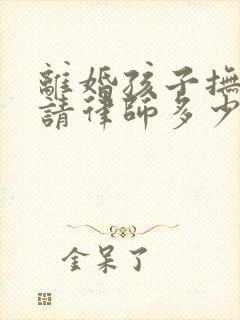 離婚孩子撫
請律師多少
金呆了